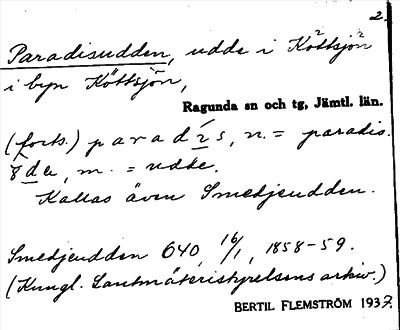 2.
Paradisudden, udde i Köttsjön
i byn Köttsjön,
Ragunda sn och tg, Jämtl. län.
(forts.) parad̲ı̲s, n. = paradis.
m. = udde.
Kallas även Smedjeudden.
Smedjeudden 640, 16/1, 1858-59.
(Kungl. Lantmäteristyrelsens arkiv.)
BERTIL FLEMSTRÖM 1937.